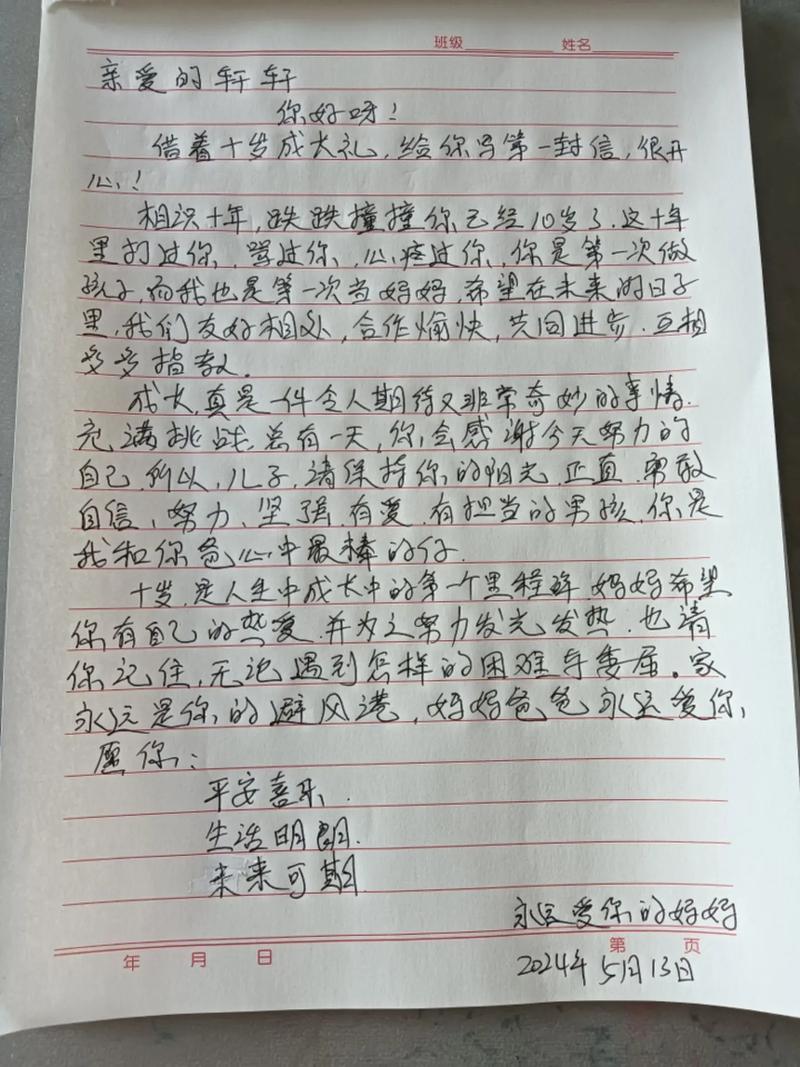 班级 姓名
亲爱的轩轩
你好呀！
借着十岁成长礼，给你写第一封信，很开
心！
相识十年，跌跌撞撞你已经10岁了，这十年
里打过你，骂过你，心疼过你，你是第一次做
孩子，而我也是第一次当妈妈，希望在未来的日子
里，我们友好相处，合作愉快，共同进步，互相
多多指教。
成长真是一件令人期待又非常奇妙的事情，
充满挑战，总有一天，你会感谢今天努力的
自己，所以，儿子，请保持你的阳光、正直、勇敢
自信、努力、坚强、有爱、有担当的男孩，你是
我和你爸心中最棒的仔。
十岁，是人生中成长中的第一个里程碑，妈妈希望
你有自己的热爱，并为之努力发光发热，也请
你记住，无论遇到怎样的困难与委屈。家
永远是你的避风港，妈妈爸爸永远爱你，
愿你：
平安喜乐.
生活明朗.
未来可期.
永远爱你的妈妈
年 月 日 第 页
2024年5月13日